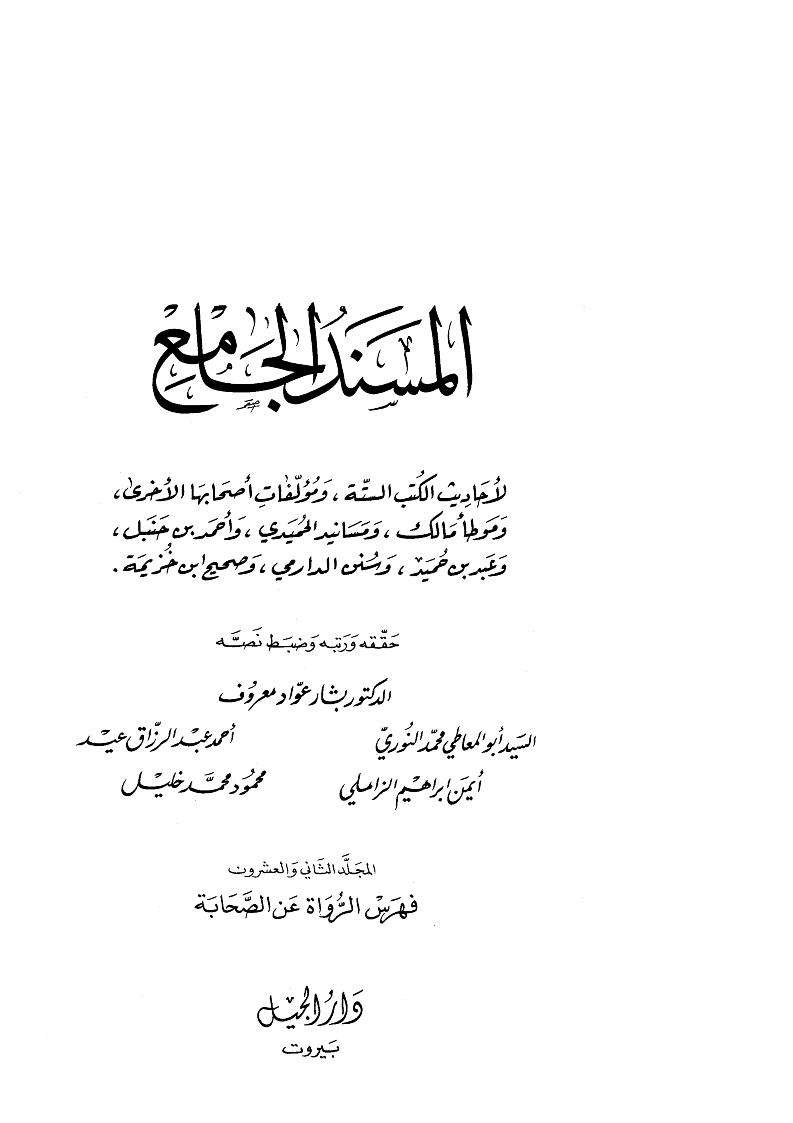 المسند الجامع
لأحاديث الكتب الستة ، ومؤلفات أصحابها الأخرى ،
وموطأ مالك ، ومسانيد الحميدي ، وأحمد بن حنبل ،
وعبد بن حميد ، وسنن الدارمي ، وصحيح ابن خزيمة .
حققه ورتبه وضبط نصه
الدكتور بشار عواد معروف
السيد أبو المعاطي محمد النوري أحمد عبد الرزاق عيد
أيمن ابراهيم الزاملي محمود محمد خليل
المجلد الثاني والعشرون
فهرس الرواة عن الصحابة
دار الجيل
بيروت